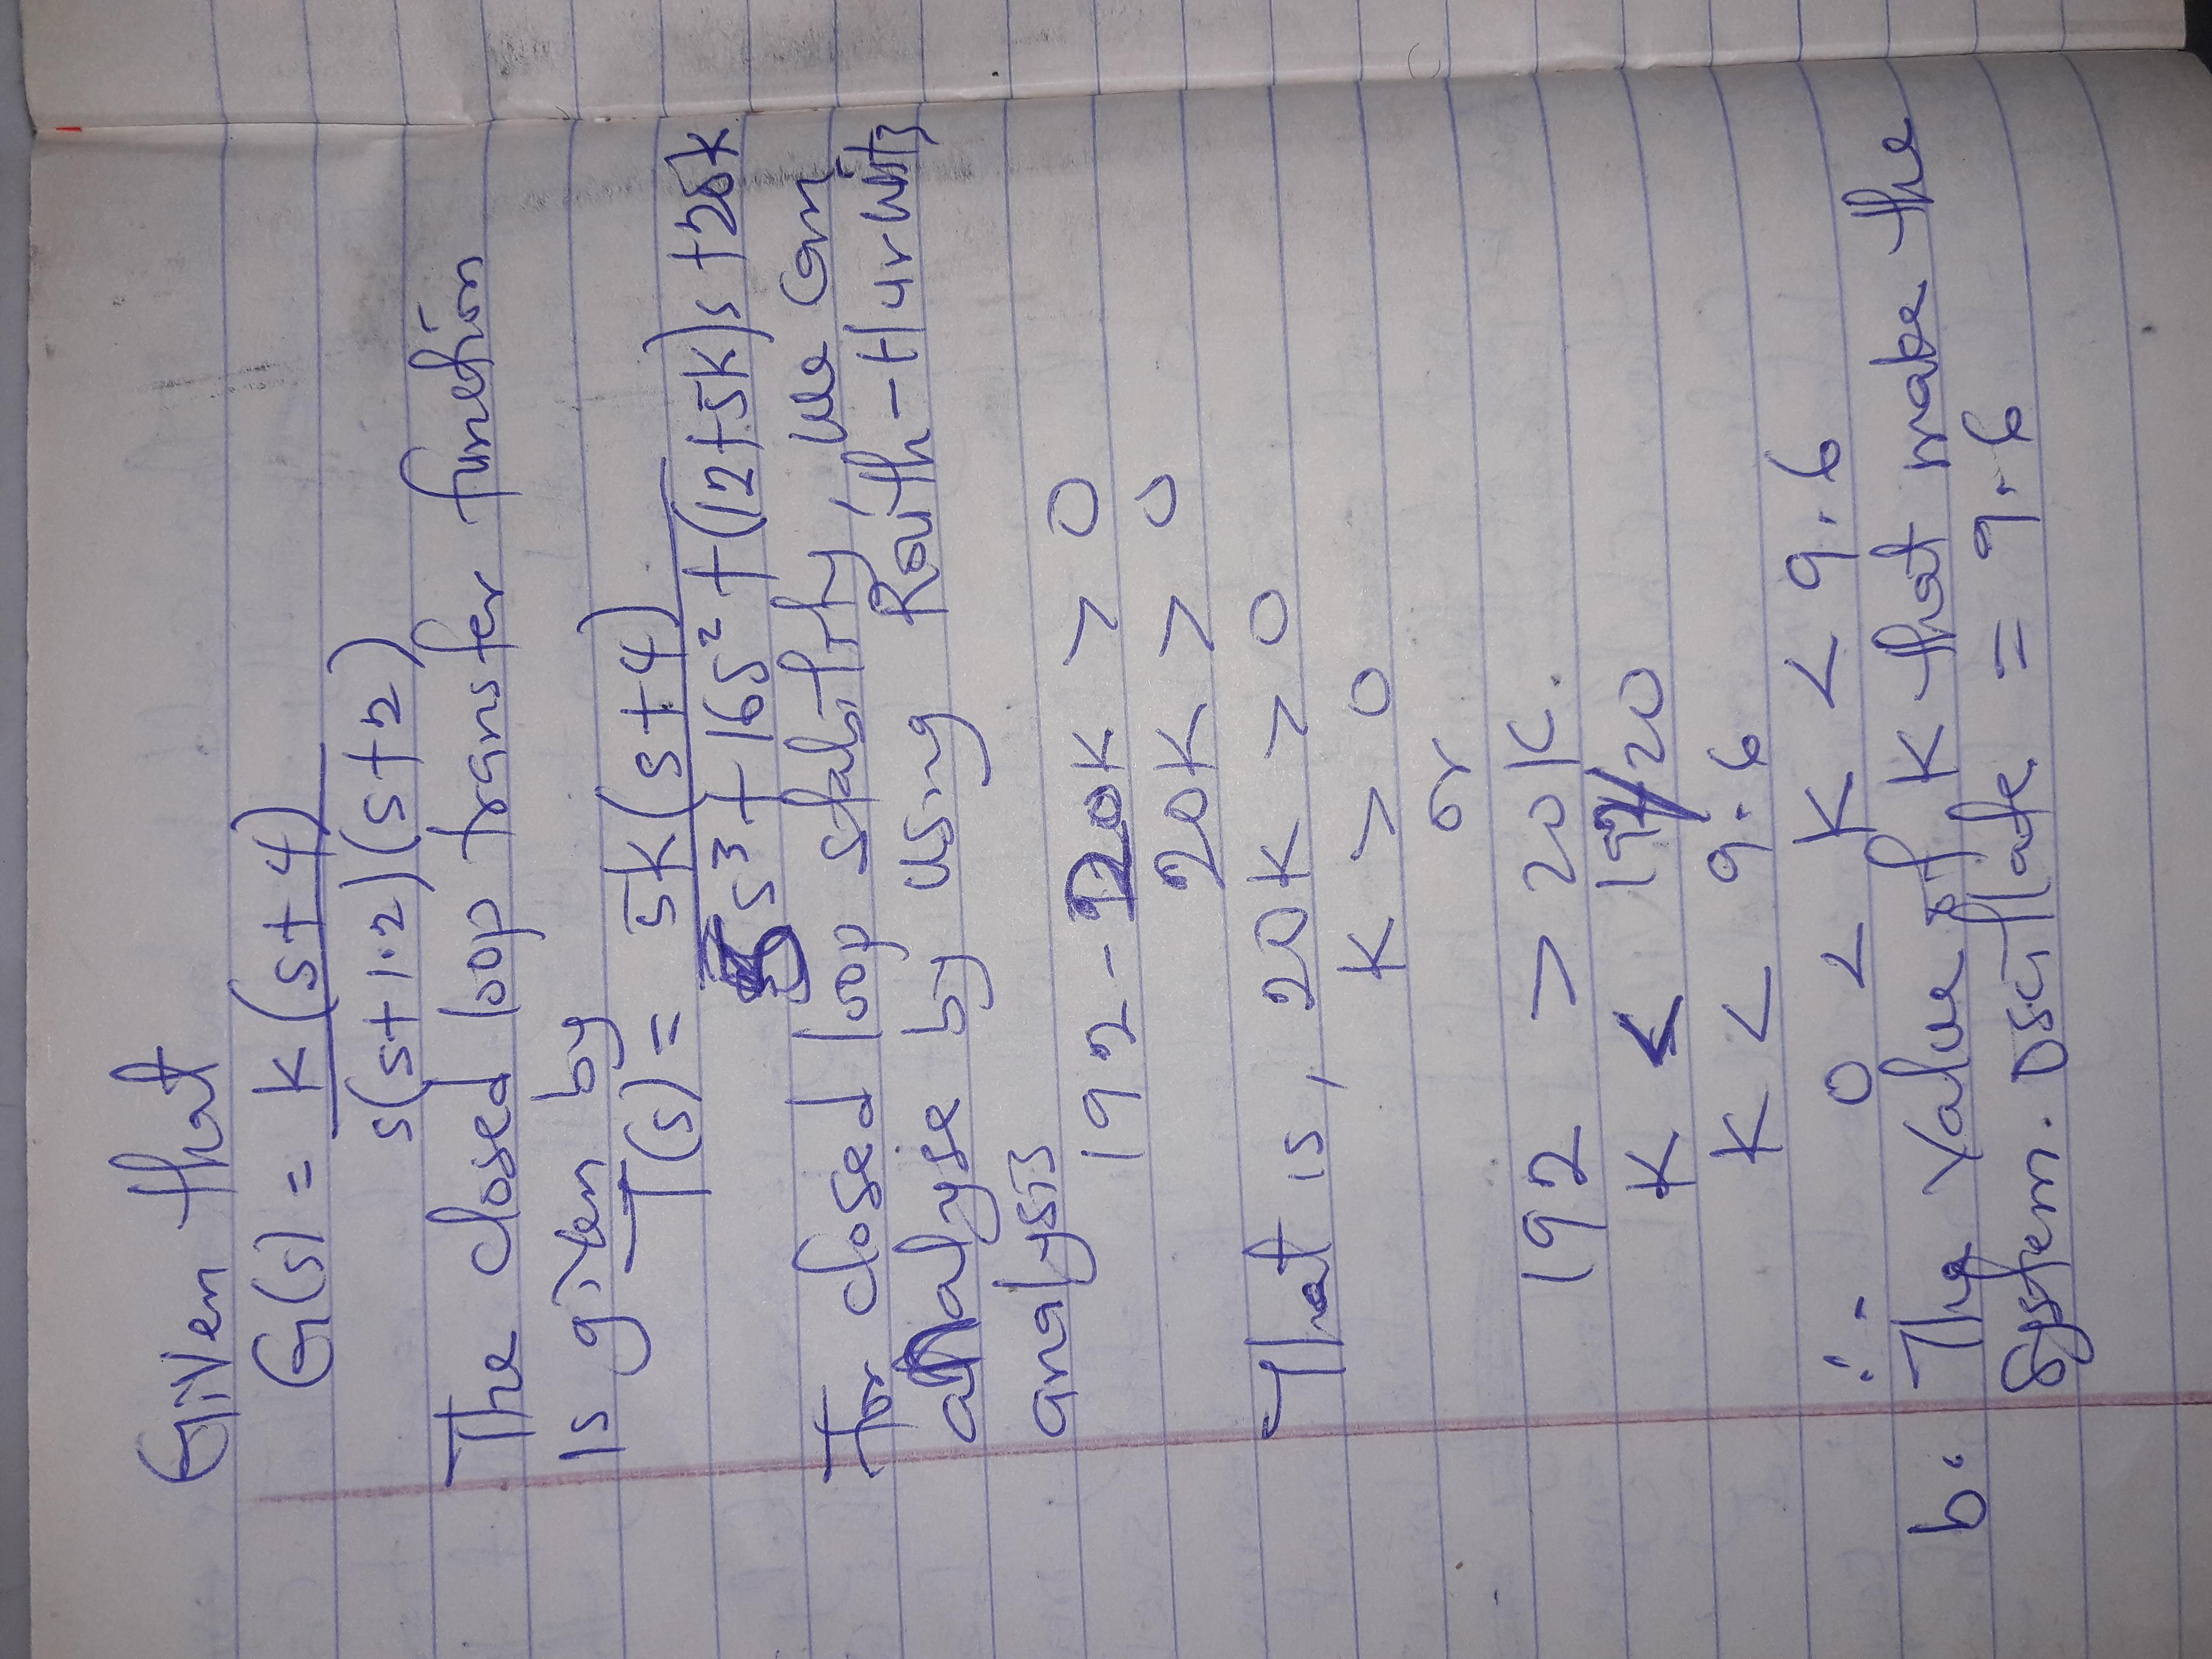 Given that
G(s) = K(s+4)
s(s+1.2)(s+2)
The closed loop transfer function
is given by
T(s) = 5K(s+4)
5s³+16s²+(12+5K)s+20K
For closed loop stability, we can
analyse by using Routh-Hurwitz
analysis
192-20K > 0
20K > 0
That is, 20K > 0
K > 0
or
192 > 20K.
K < 192/20
K < 9.6
∴ 0 < K < 9.6
b. The Value of K that make the
System. Oscillate = 9.6